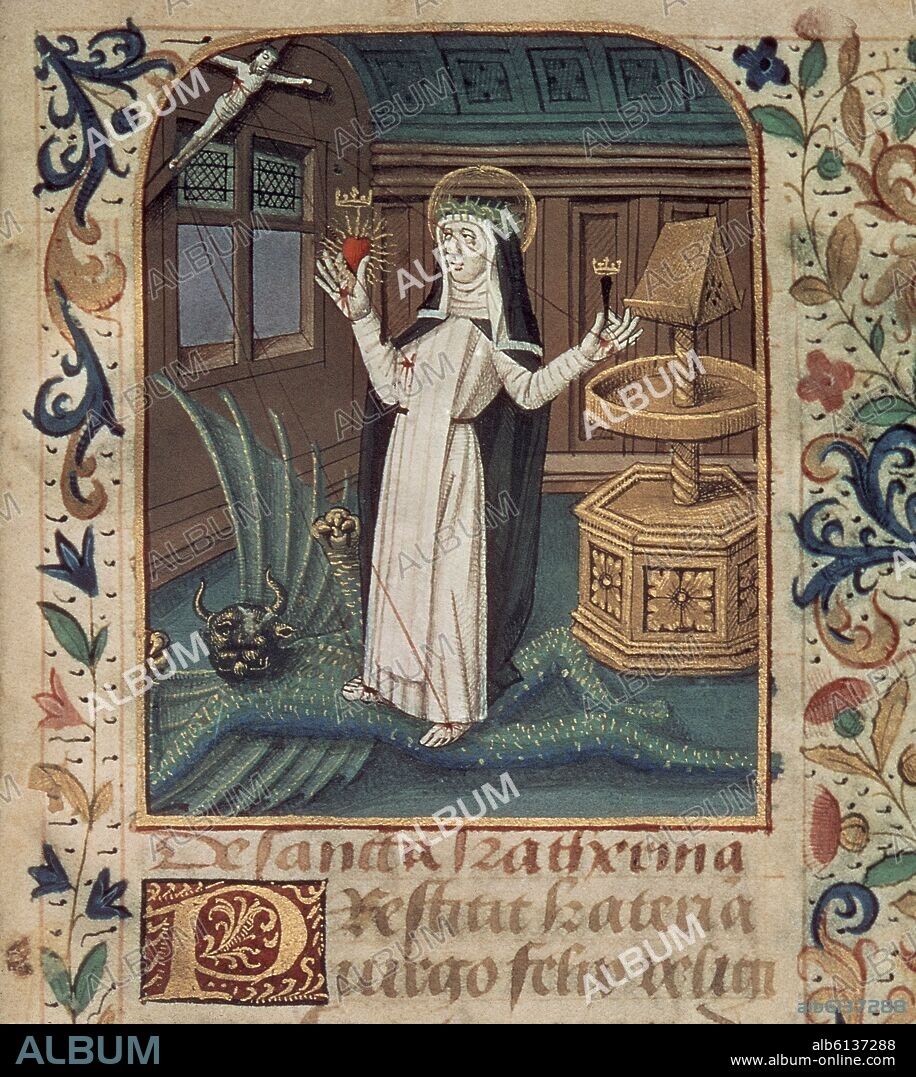 De sancta Katherina
Prestitit Katerina
virgo felix
ALBUM
alb6137288
ALBUM
alb6137288
www.album-online.com